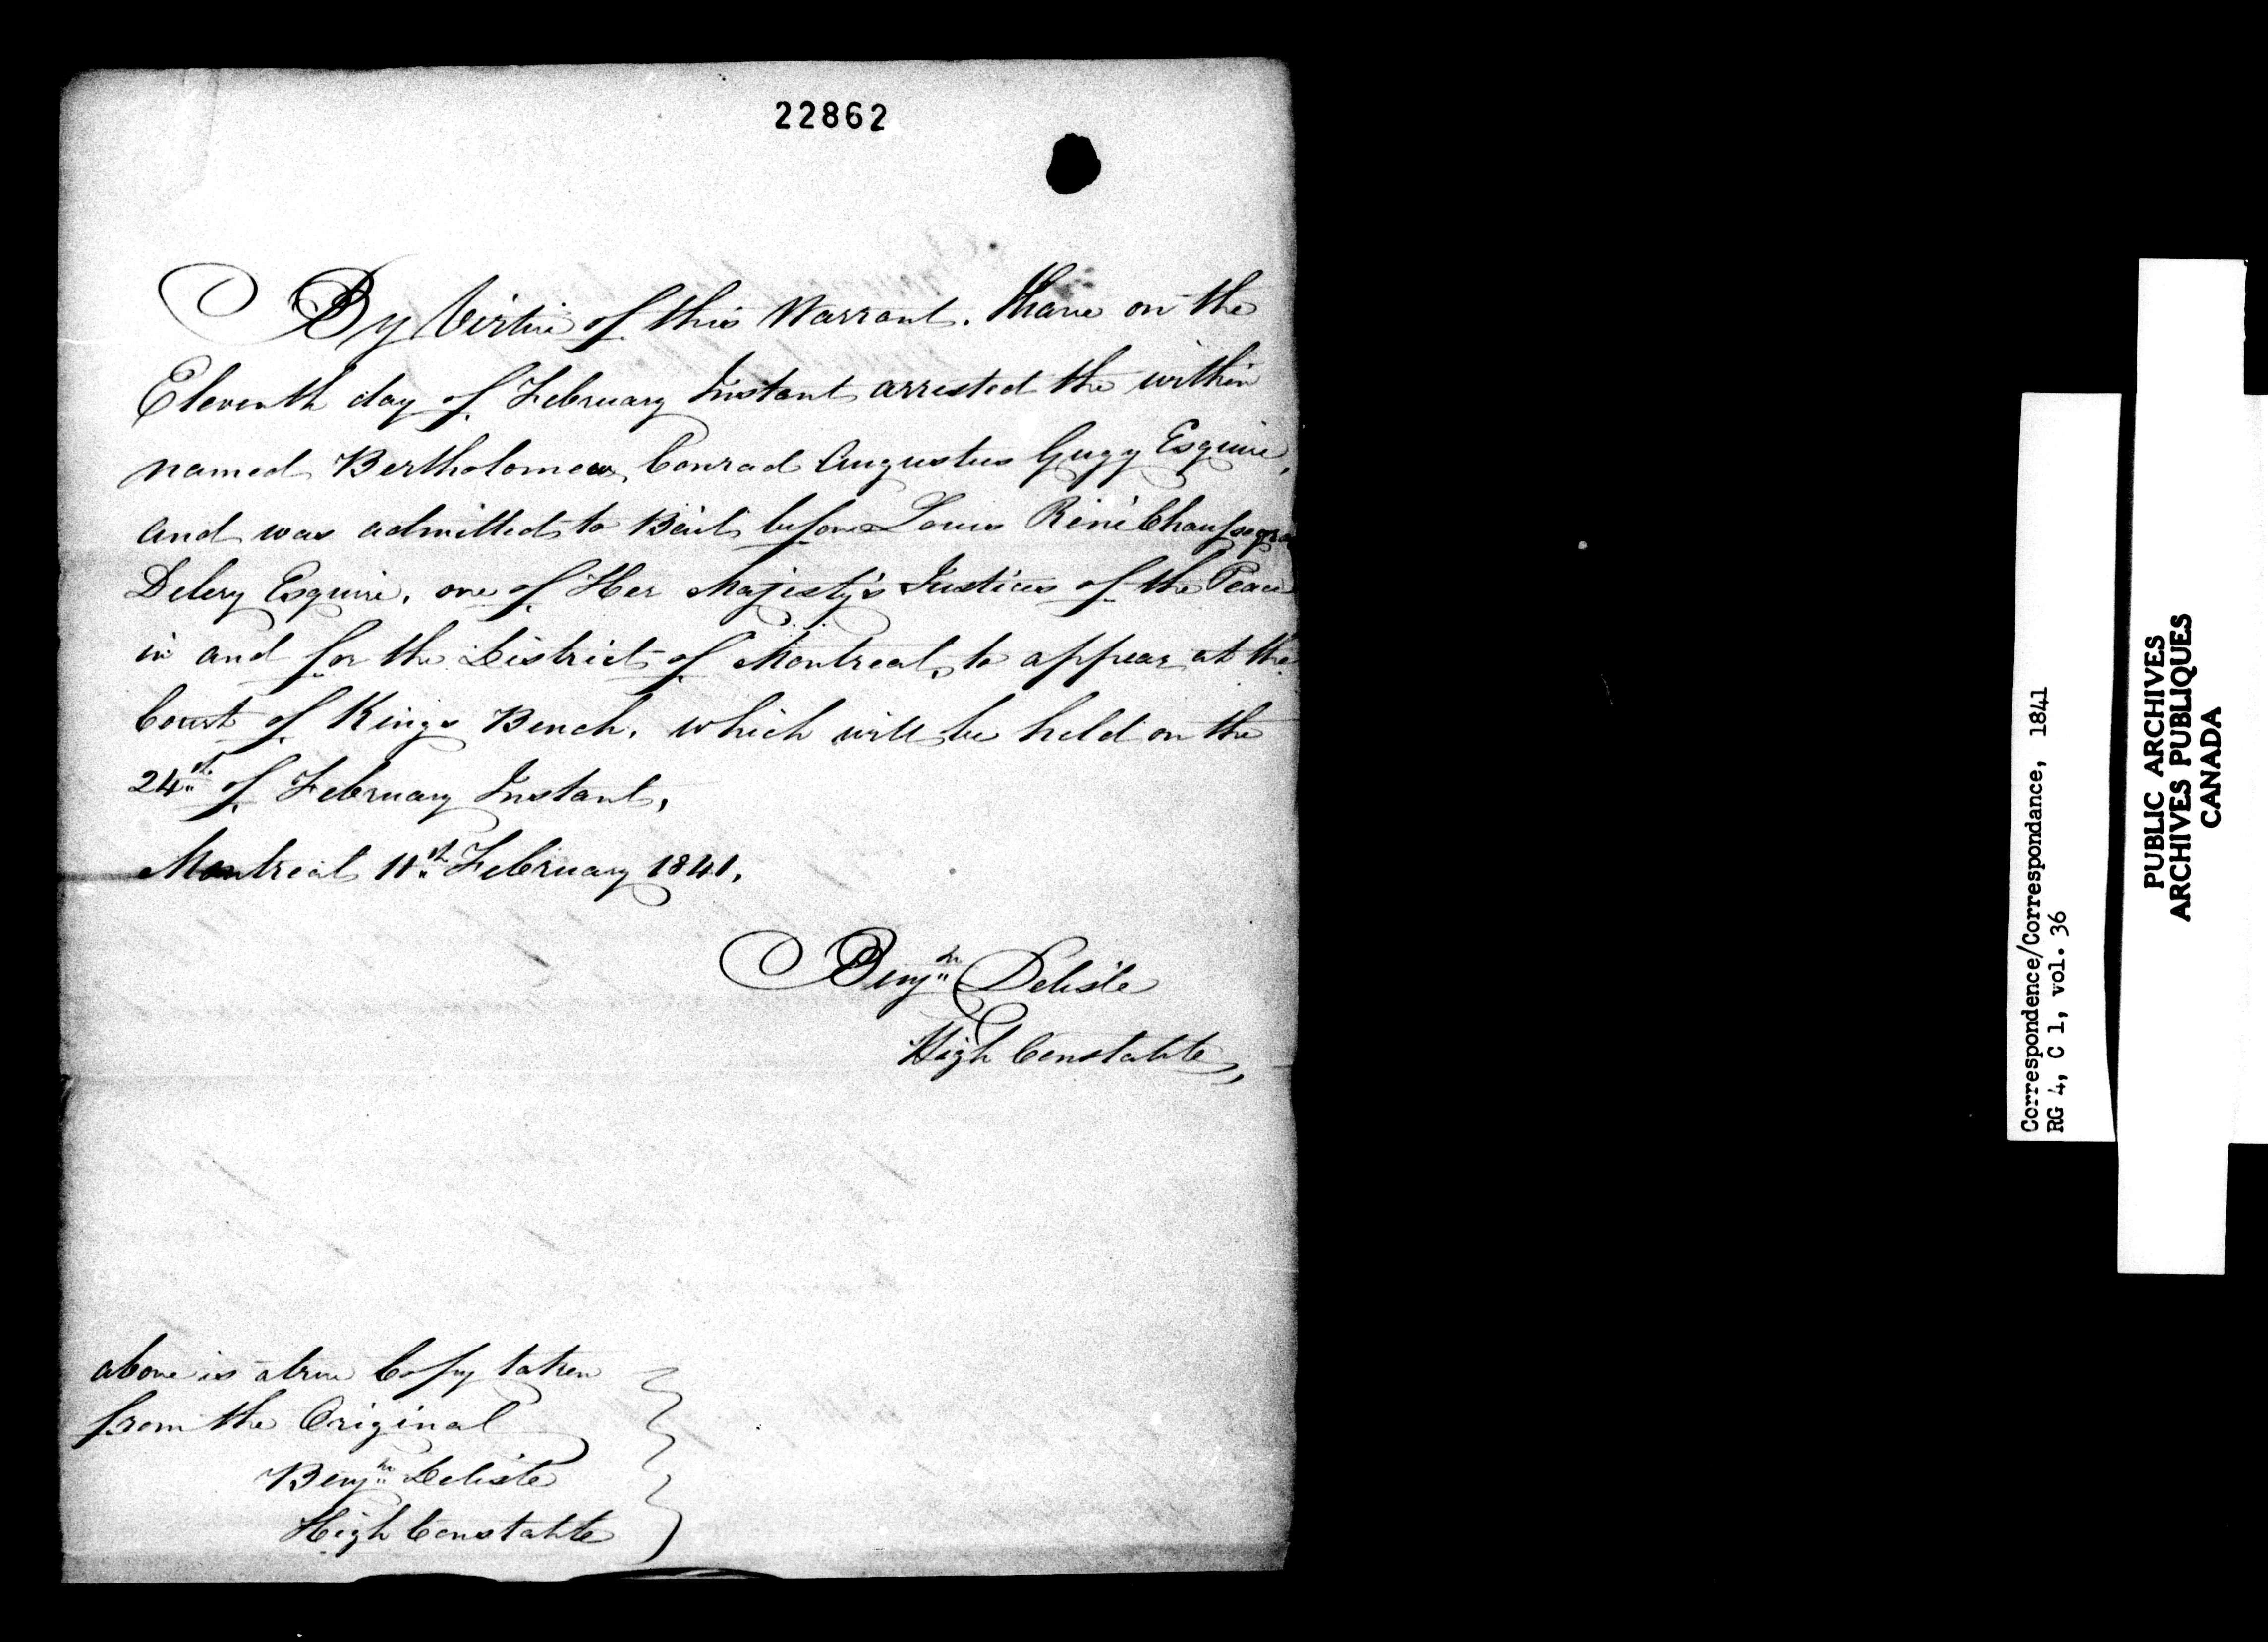 22862
By Virtue of this Warrant. I have on the
Eleventh day of February Instant arrested the within
named Bertholomew Conrad Augustus Gugy Esquire,
and was admitted to Bail before Louis René Chaussegra
Delery Esquire, one of Her Majesty's Justices of the Peace
in and for the District of Montreal, to appear at the
Court of Kings Bench, which will be held on the
24th of February Instant,
Montreal 11th February 1841,
Benjn Delisle
High Constable,
above is a true Copy taken
from the Original
Benjn Delisle
High Constable
Correspondence/Correspondance, 1841
RG 4, C 1, vol. 36
PUBLIC ARCHIVES
ARCHIVES PUBLIQUES
CANADA